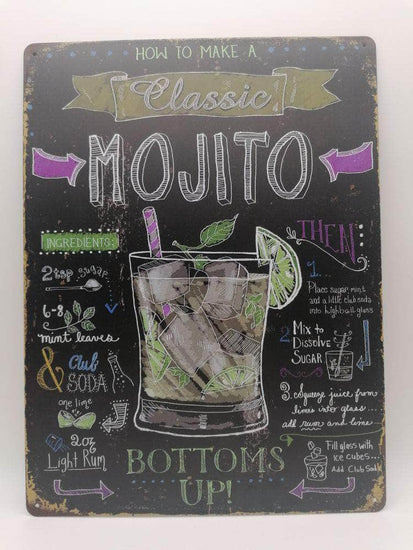 HOW TO MAKE A
Classic
MOJITO
INGREDIENTS:
2 tsp sugar
6-8
mint leaves
& Club
SODA
one lime
2 oz
Light Rum
THEN
1.
Place sugar, mint
and a little club soda
into highball glass
2. Mix to
Dissolve
SUGAR
3. squeeze juice from
limes into glass...
add rum and lime
Fill glass with
ice cubes...
Add Club Soda
BOTTOMS
UP!